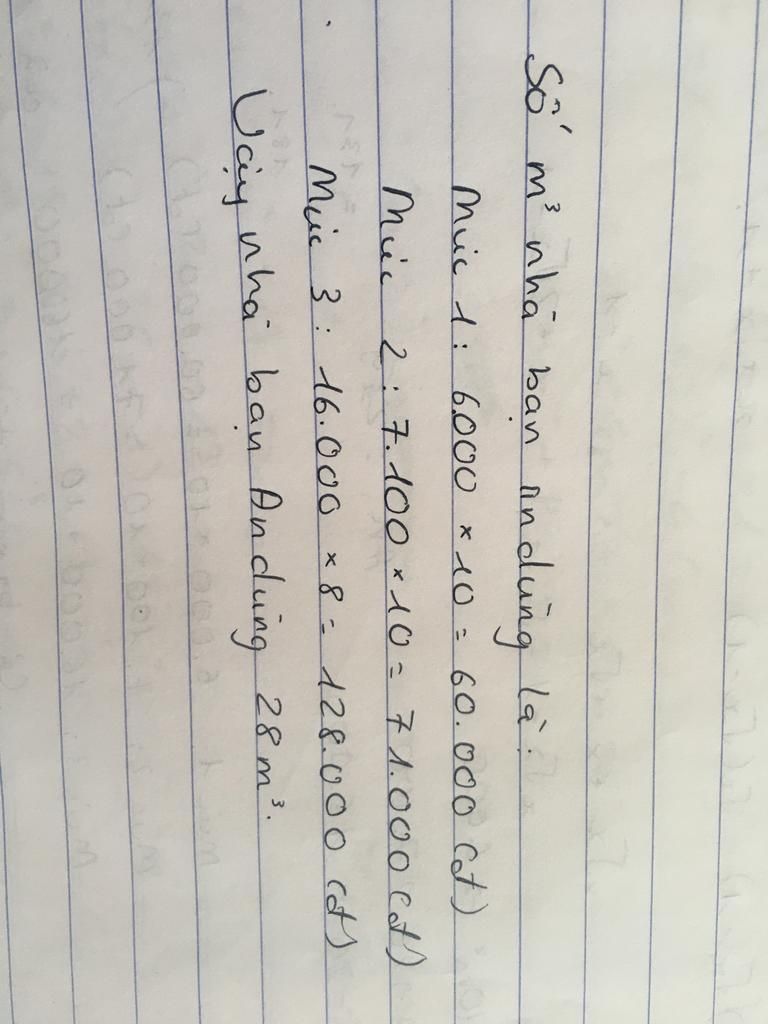 Số m³ nhà bạn An dùng là:
Mức 1: 6.000 × 10 = 60.000 (đ)
Mức 2: 7.100 × 10 = 71.000 (đ)
Mức 3: 16.000 × 8 = 128.000 (đ)
Vậy nhà bạn An dùng 28 m³.